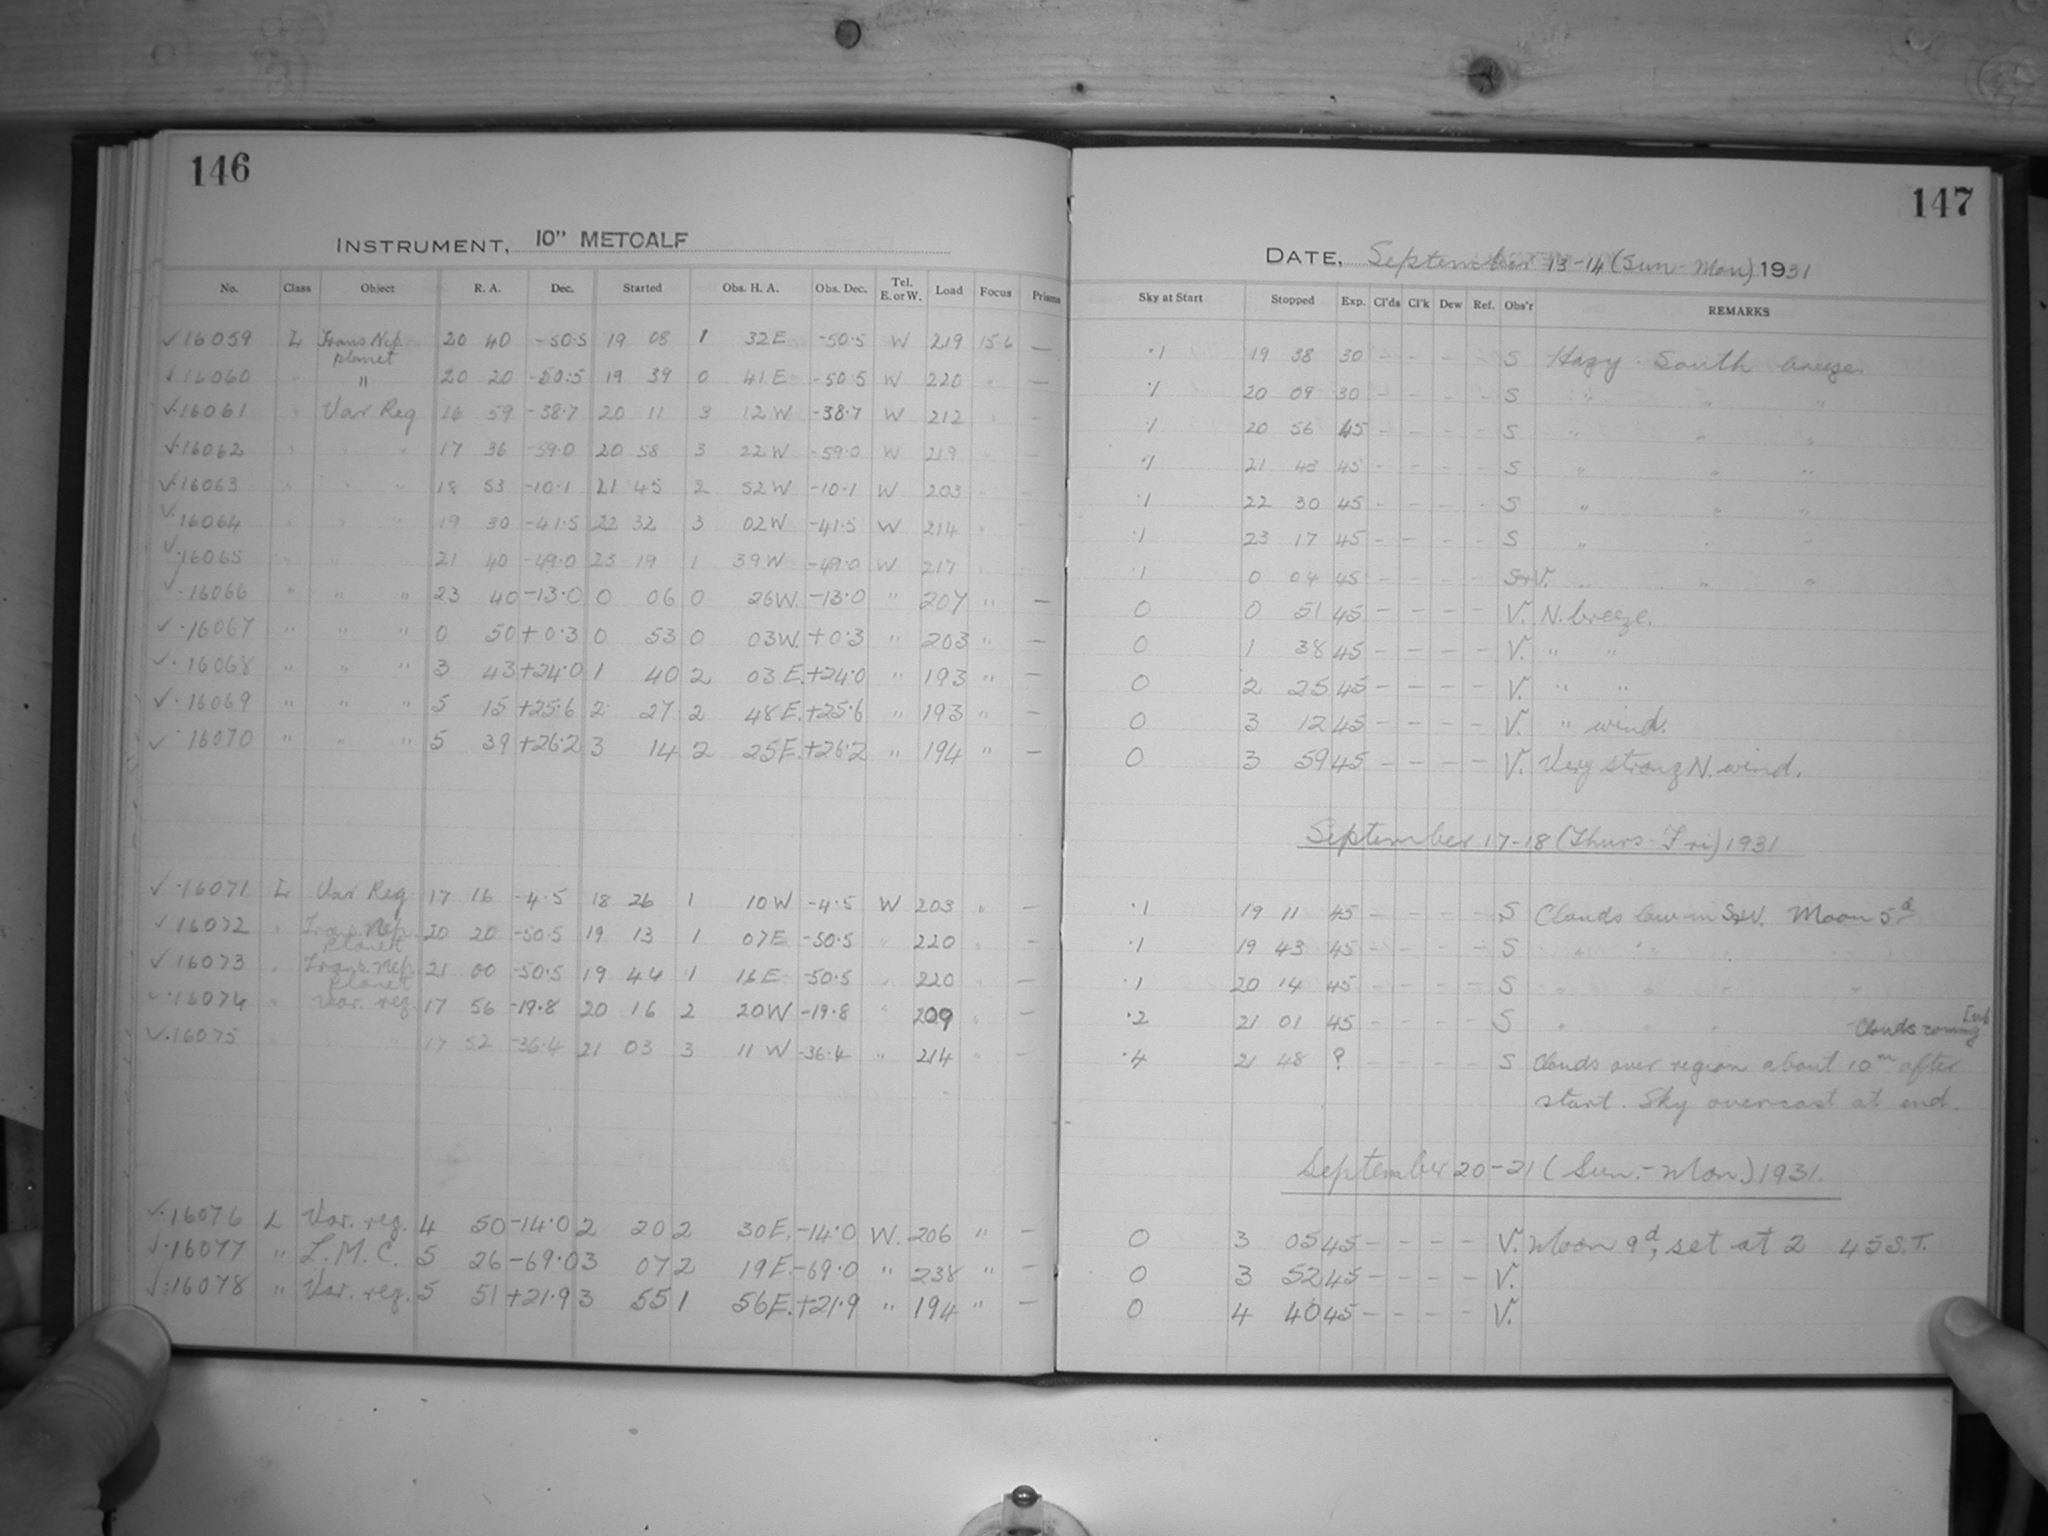 146
INSTRUMENT, 10" METCALF
No. Class Object R. A. Dec. Started Obs. H. A. Obs. Dec. Tel. E. or W. Load Focus Prisms
✓16059 L Trans Nep. planet 20 40 -50.5 19 08 1 32E -50.5 W 219 15.6 —
✓16060 " " 20 20 -50.5 19 39 0 41E -50.5 W 220 " —
✓16061 " Var Reg 16 59 -38.7 20 11 3 12W -38.7 W 212 " —
✓16062 " " " 17 36 -59.0 20 58 3 22W -59.0 W 219 " —
✓16063 " " " 18 53 -10.1 21 45 2 52W -10.1 W 203 " —
✓16064 " " " 19 30 -41.5 22 32 3 02W -41.5 W 214 " —
✓16065 " " " 21 40 -49.0 23 19 1 39W -49.0 W 217 " —
✓16066 " " " 23 40 -13.0 0 06 0 26W. -13.0 " 207 " —
✓16067 " " " 0 50 +0.3 0 53 0 03W. +0.3 " 203 " —
✓16068 " " " 3 43 +24.0 1 40 2 03E. +24.0 " 193 " —
✓16069 " " " 5 15 +25.6 2 27 2 48E. +25.6 " 193 " —
✓16070 " " " 5 39 +26.2 3 14 2 25E. +26.2 " 194 " —
✓16071 L Var Reg 17 16 -4.5 18 26 1 10W -4.5 W 203 " —
✓16072 " Trans. Nep. Planet 20 20 -50.5 19 13 1 07E -50.5 " 220 " —
✓16073 " Trans. Nep. Planet 21 00 -50.5 19 44 1 16E -50.5 " 220 " —
✓16074 " Var. reg. 17 56 -19.8 20 16 2 20W -19.8 " 209 " —
✓16075 " " " 17 52 -36.4 21 03 3 11W -36.4 " 214 " —
✓16076 L Var. reg. 4 50 -14.0 2 20 2 30E. -14.0 W. 206 " —
✓16077 " L.M.C. 5 26 -69.0 3 07 2 19E. -69.0 " 238 " —
✓16078 " Var. reg. 5 51 +21.9 3 55 1 56E. +21.9 " 194 " —
147
DATE, September 13-14 (Sun-Mon) 1931
Sky at Start Stopped Exp. Cl'ds Cl'k Dew Ref. Obs'r REMARKS
.1 19 38 30 - - - - S Hazy. South breeze.
.1 20 09 30 - - - - S " " "
.1 20 56 45 - - - - S " " "
.1 21 43 45 - - - - S " " "
.1 22 30 45 - - - - S " " "
.1 23 17 45 - - - - S " " "
.1 0 04 45 - - - - S+V. " " "
0 0 51 45 - - - - V. N. breeze.
0 1 38 45 - - - - V. " "
0 2 25 45 - - - - V. " "
0 3 12 45 - - - - V. " wind.
0 3 59 45 - - - - V. Very strong N. wind.
September 17-18 (Thurs-Fri) 1931
.1 19 11 45 - - - - S Clouds low in S+V. Moon 5d
.1 19 43 45 - - - - S " " "
.1 20 14 45 - - - - S " " " "
.2 21 01 45 - - - - S " " " Clouds coming [up
.4 21 48 ? - - - - S Clouds over region about 10m after
start. Sky overcast at end.
September 20-21 (Sun.-Mon.) 1931.
0 3 05 45 - - - - V. Moon 9d, set at 2 45 S.T.
0 3 52 45 - - - - V.
0 4 40 45 - - - - V.